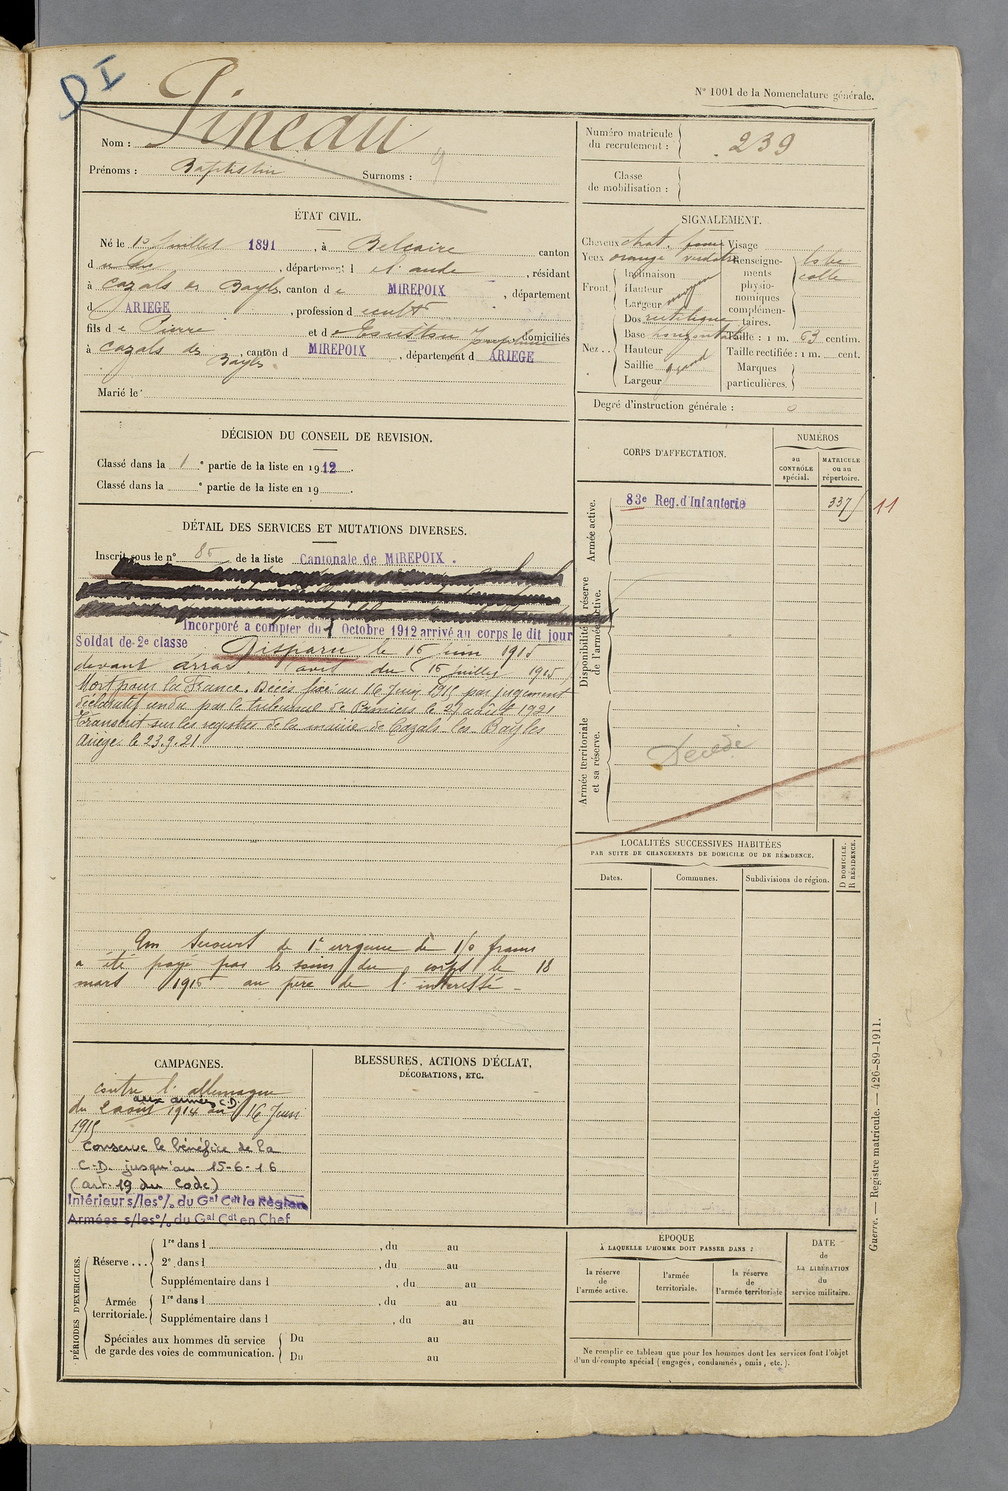 DI
N° 1001 de la Nomenclature générale.
Nom : Pineau
Prénoms : Baptistin Surnoms :
Numéro matricule du recrutement : 239
Classe de mobilisation :
ÉTAT CIVIL.
Né le 10 Juillet 1891, à Belcaire canton
d u dit, département de l'aude, résidant
à Cazals des Bayles, canton de MIREPOIX, département
d ARIEGE, profession de cult
fils de Pierre et de Josephine domiciliés
à Cazals des Bayles, canton d MIREPOIX, département d ARIEGE
Marié le
SIGNALEMENT.
Cheveux chat. foncé Visage
Yeux orange verdatre
Front. Inclinaison
Hauteur
Largeur moyen
Nez. Dos rectiligne
Base horizontale
Hauteur
Saillie grand
Largeur
Renseignements physionomiques complémentaires. lobe collé
Taille : 1 m. 63 centim.
Taille rectifiée : 1 m. cent.
Marques particulières.
Degré d'instruction générale :
DÉCISION DU CONSEIL DE REVISION.
Classé dans la 1e partie de la liste en 1912.
Classé dans la e partie de la liste en 19 .
DÉTAIL DES SERVICES ET MUTATIONS DIVERSES.
Inscrit sous le n° de la liste Cantonale de MIREPOIX.
Incorporé a compter du Octobre 1912 arrivé au corps le dit jour
Soldat de 2e classe Disparu le 16 juin 1915
devant arras. avis du 15 juillet 1915
Mort pour la France. Décès fixé au 16 Juin 1915 par jugement
déclaratif rendu par le tribunal de Pamiers le 29 août 1921
Transcrit sur les registres de la mairie de Cazals-les-Bayles
Ariège le 23.9.21
Un secours de 1e urgence de 150 francs
a été payé par les soins du corps le 18
mars 1916 au père de l'interessé -
CORPS D'AFFECTATION.
NUMÉROS
au CONTRÔLE spécial.
MATRICULE ou au répertoire.
Armée active.
83e Reg. d'Infanterie 337 11
Disponibilité et réserve de l'armée active.
Armée territoriale et sa réserve.
Décédé
LOCALITÉS SUCCESSIVES HABITÉES
PAR SUITE DE CHANGEMENTS DE DOMICILE OU DE RÉSIDENCE.
Dates. Communes. Subdivisions de région. D DOMICILE. R RÉSIDENCE.
CAMPAGNES.
contre l'allemagne
aux armées C.D.
du 2 août 1914 au 16 Juin
1915
Conserve le bénéfice de la
C.D. jusqu'au 15-6-16
(art. 19 du Code)
Intérieur s/les o/o du Gal Cdt la Région
Armées s/les o/o du Gal Cdt en Chef
BLESSURES, ACTIONS D'ÉCLAT,
DÉCORATIONS, ETC.
PÉRIODES D'EXERCICES.
Réserve... 1re dans l , du au
2e dans l , du au
Supplémentaire dans l , du au
Armée territoriale. 1re dans l , du au
Supplémentaire dans l , du au
Spéciales aux hommes du service de garde des voies de communication. Du au
Du au
ÉPOQUE
À LAQUELLE L'HOMME DOIT PASSER DANS :
la réserve de l'armée active.
l'armée territoriale.
la réserve de l'armée territoriale
DATE de LA LIBÉRATION du service militaire.
Ne remplir ce tableau que pour les hommes dont les services font l'objet
d'un décompte spécial (engagés, condamnés, omis, etc.).
Guerre. — Registre matricule. — 426-89-1911.